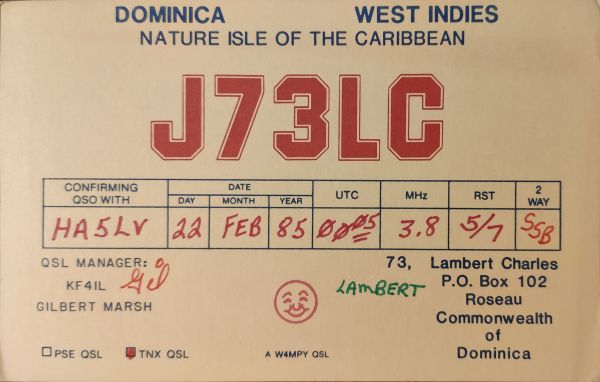 DOMINICA WEST INDIES
NATURE ISLE OF THE CARIBBEAN
J73LC
CONFIRMING QSO WITH DATE UTC MHz RST 2 WAY
DAY MONTH YEAR
HA5LV 22 FEB 85 0005 3.8 5/7 SSB
QSL MANAGER:
KF4IL Gil
GILBERT MARSH
73, Lambert Charles
LAMBERT P.O. Box 102
Roseau
Commonwealth
of
Dominica
PSE QSL TNX QSL A W4MPY QSL